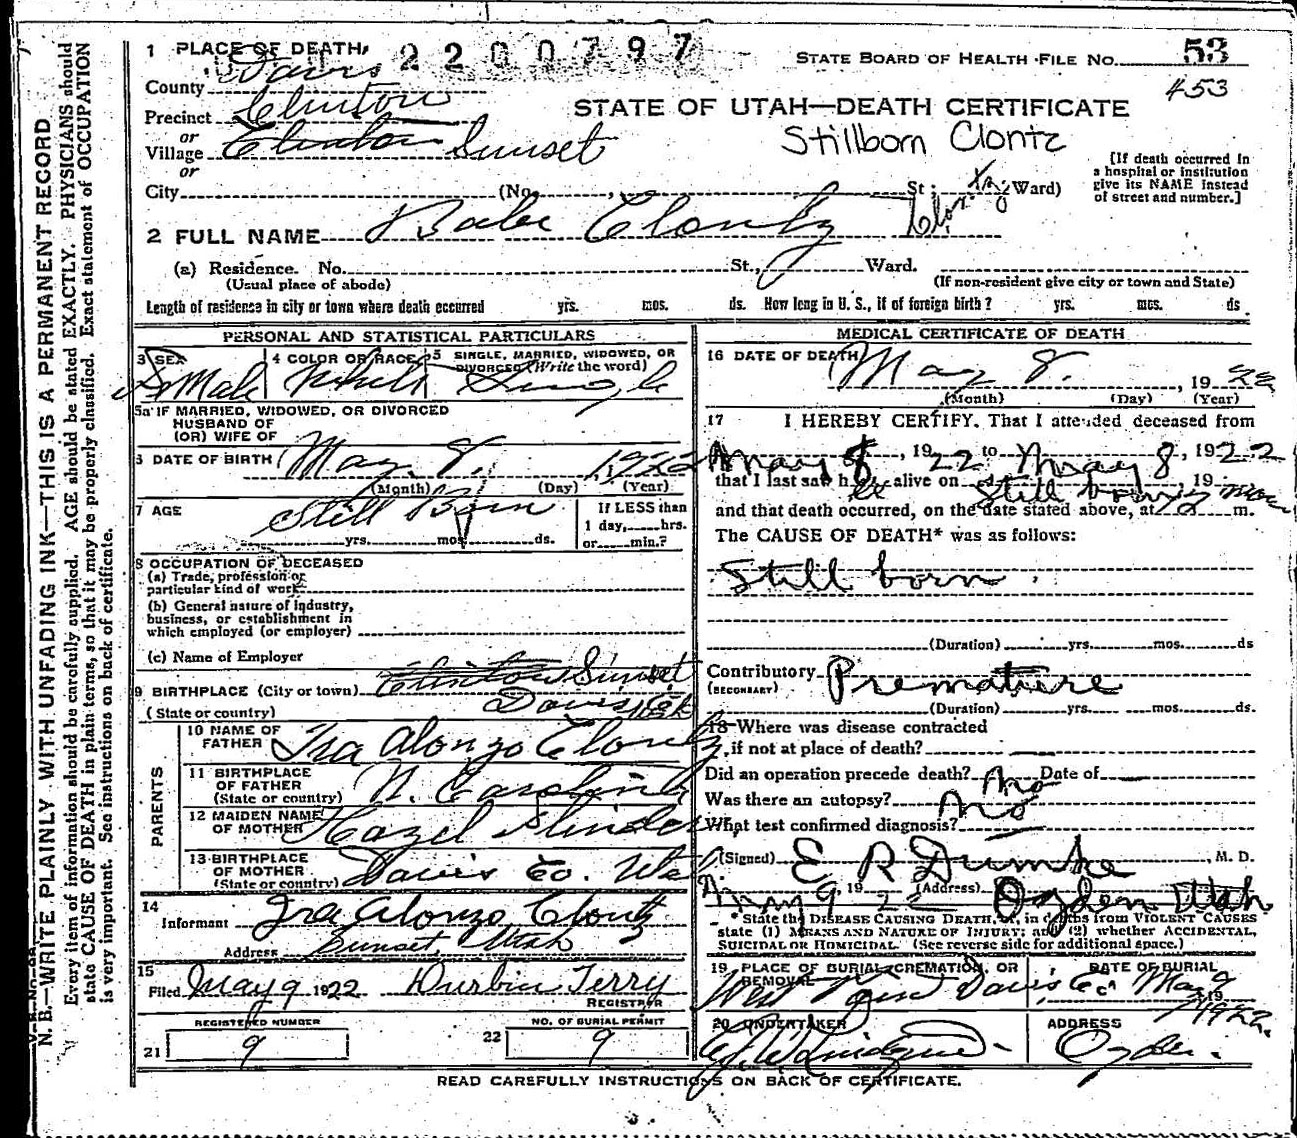 N. B.—WRITE PLAINLY WITH UNFADING INK—THIS IS A PERMANENT RECORD
Every item of information should be carefully supplied. AGE should be stated EXACTLY. PHYSICIANS should
state CAUSE OF DEATH in plain terms, so that it may be properly classified. Exact statement of OCCUPATION
is very important. See instructions on back of certificate.
1 PLACE OF DEATH
2200797
STATE BOARD OF HEALTH FILE NO. 53
453
County Davis
Precinct Clinton
STATE OF UTAH—DEATH CERTIFICATE
or
Village Clinton Sunset
Stillborn Clontz
or
[If death occurred in
a hospital or institution
give its NAME instead
of street and number.]
City (No. , St; Ward)
2 FULL NAME Babe Clontz
(a) Residence. No. St., Ward.
(Usual place of abode) (If non-resident give city or town and State)
Length of residence in city or town where death occurred yrs. mos. ds. How long in U. S., if of foreign birth? yrs. mos. ds.
PERSONAL AND STATISTICAL PARTICULARS
3 SEX
4 COLOR OR RACE
5 SINGLE, MARRIED, WIDOWED, OR
DIVORCED (Write the word)
Male White Single
5a IF MARRIED, WIDOWED, OR DIVORCED
HUSBAND OF
(OR) WIFE OF
6 DATE OF BIRTH May 8, 1922
(Month) (Day) (Year)
7 AGE Still Born
If LESS than
1 day, hrs.
or min.?
yrs. mos. ds.
8 OCCUPATION OF DECEASED
(a) Trade, profession or
particular kind of work
(b) General nature of industry,
business, or establishment in
which employed (or employer)
(c) Name of Employer
9 BIRTHPLACE (City or town) Clinton Sunset
(State or country) Davis, Utah
PARENTS
10 NAME OF
FATHER Ira Alonzo Clontz
11 BIRTHPLACE
OF FATHER
(State or country) N. Carolina
12 MAIDEN NAME
OF MOTHER Hazel
13 BIRTHPLACE
OF MOTHER
(State or country) Davis Co. Utah
14
Informant Ira Alonzo Clontz
Address Sunset, Utah
15
Filed May 9 1922 Durbin Terry
REGISTRAR
REGISTERED NUMBER
21 9
NO. OF BURIAL PERMIT
22 9
MEDICAL CERTIFICATE OF DEATH
16 DATE OF DEATH May 8. , 1922
(Month) (Day) (Year)
17 I HEREBY CERTIFY, That I attended deceased from
May 8, 1922 to May 8, 1922
that I last saw h alive on Still born, 19
and that death occurred, on the date stated above, at m.
The CAUSE OF DEATH* was as follows:
Still born.
(Duration) yrs. mos. ds
Contributory Premature
(SECONDARY)
(Duration) yrs. mos. ds.
18 Where was disease contracted
if not at place of death?
Did an operation precede death? No Date of
Was there an autopsy? No
What test confirmed diagnosis?
(Signed) E R Dumke, M. D.
May 9, 1922 (Address) Ogden Utah
*State the DISEASE CAUSING DEATH, or, in deaths from VIOLENT CAUSES
state (1) MEANS AND NATURE OF INJURY; and (2) whether ACCIDENTAL,
SUICIDAL OR HOMICIDAL. (See reverse side for additional space.)
19 PLACE OF BURIAL, CREMATION, OR
REMOVAL
DATE OF BURIAL
West Davis Co. May 9
1922.
20 UNDERTAKER
ADDRESS
Ogden.
READ CAREFULLY INSTRUCTIONS ON BACK OF CERTIFICATE.